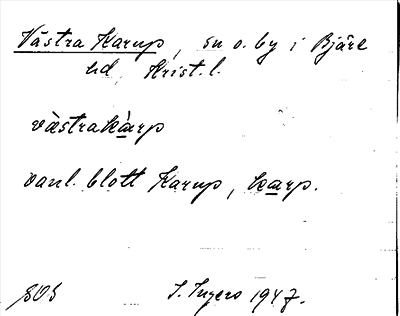 Västra Karup, sn o. by i Bjäre
hd, Krist. l.
västrakàrp
vanl. blott Karup, karp.
SOS
I. Ingers 1947.